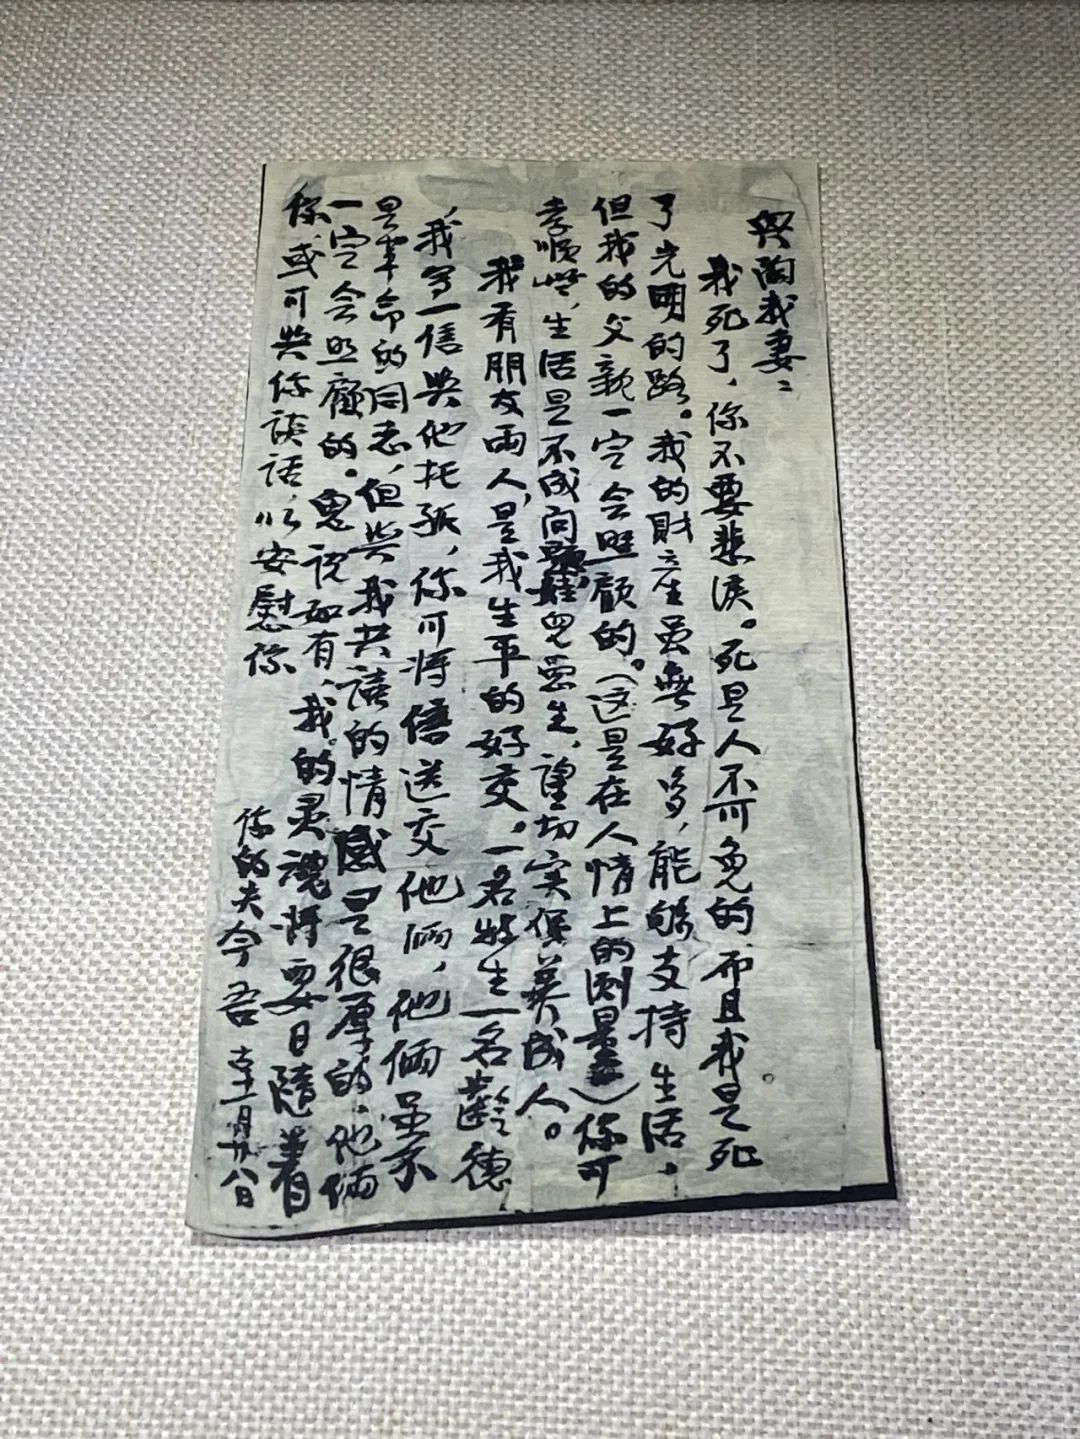 與陶我妻：
我死了，你不要悲淚。死是人不可免的，而且我是死
了光明的路。我的財產虽無好多，能够支持生活，
但我的父親一定会照顧的。（这是在人情上的測量）你可
孝順些，生活是不成问題，兒要生，望切实保养成人。
我有朋友兩人，是我生平的好交，一名牧生一名齡德
，我写一信與他托孤，你可将信送交他倆，他倆虽不
是革命的同志，但與我共讀的情感是很厚的，他倆
一定会照顧的。鬼说如有，我的灵魂将要日随着
你，或可與你談話，以安慰你
你的夫今吾 十一月廿八日